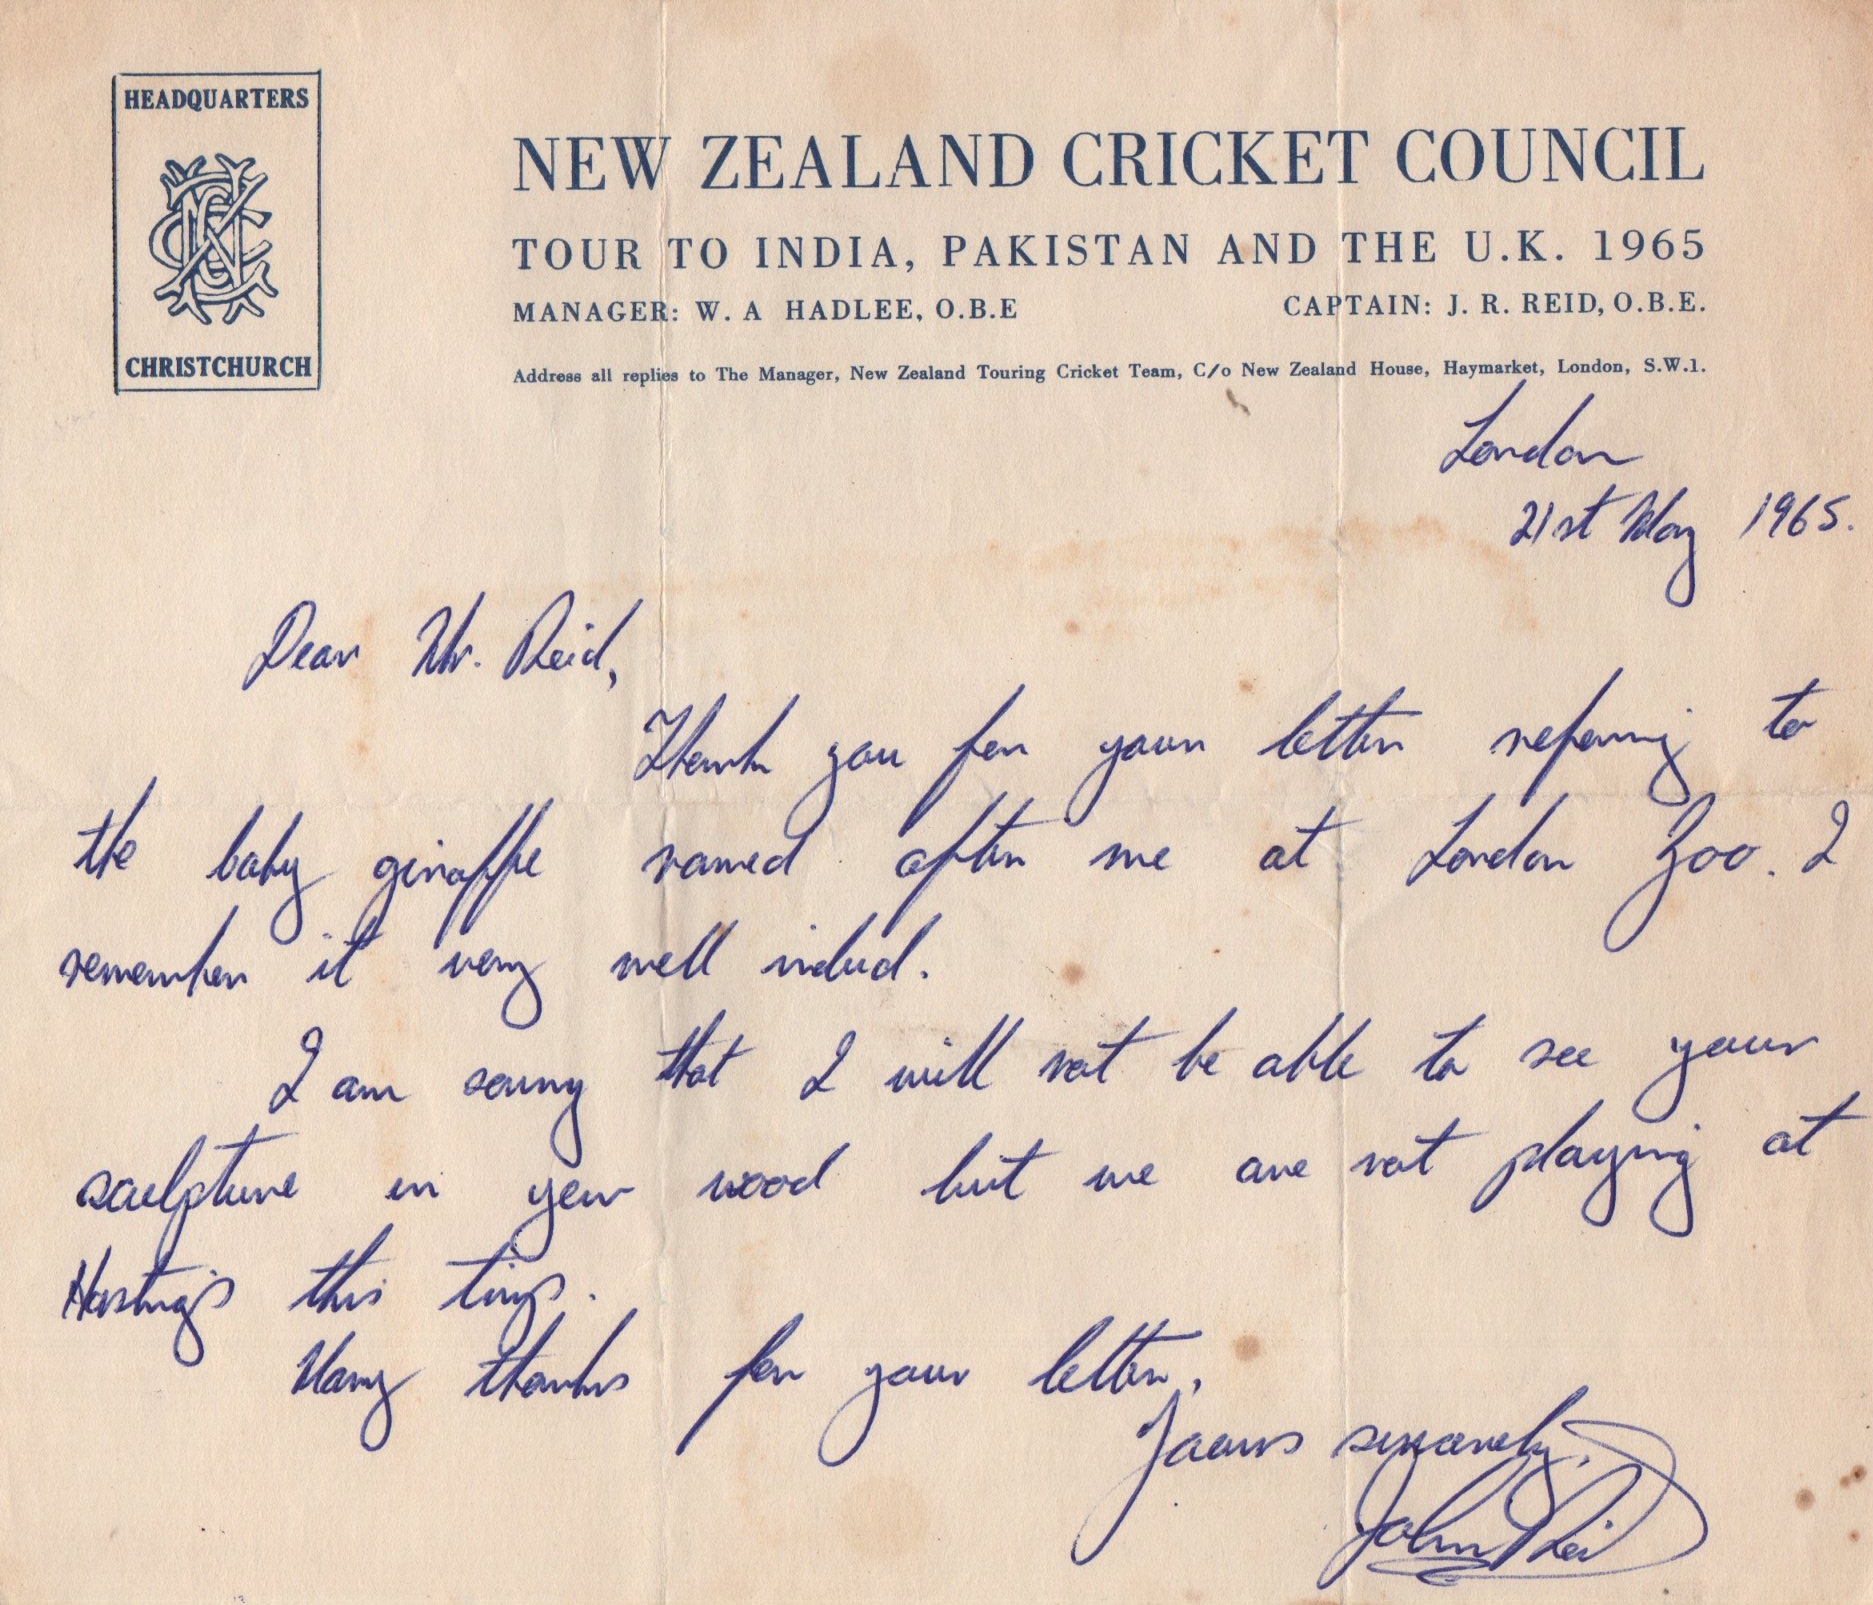 HEADQUARTERS
NZCC
CHRISTCHURCH
NEW ZEALAND CRICKET COUNCIL
TOUR TO INDIA, PAKISTAN AND THE U.K. 1965
MANAGER: W. A HADLEE, O.B.E CAPTAIN: J. R. REID, O.B.E.
Address all replies to The Manager, New Zealand Touring Cricket Team, C/o New Zealand House, Haymarket, London, S.W.1.
London
21st May 1965.
Dear Mr. Reid,
Thank you for your letter referring to
the baby giraffe named after me at London Zoo. I
remember it very well indeed.
I am sorry that I will not be able to see your
sculpture in yew wood but we are not playing at
Hastings this time.
Many thanks for your letter,
Yours sincerely,
John Reid